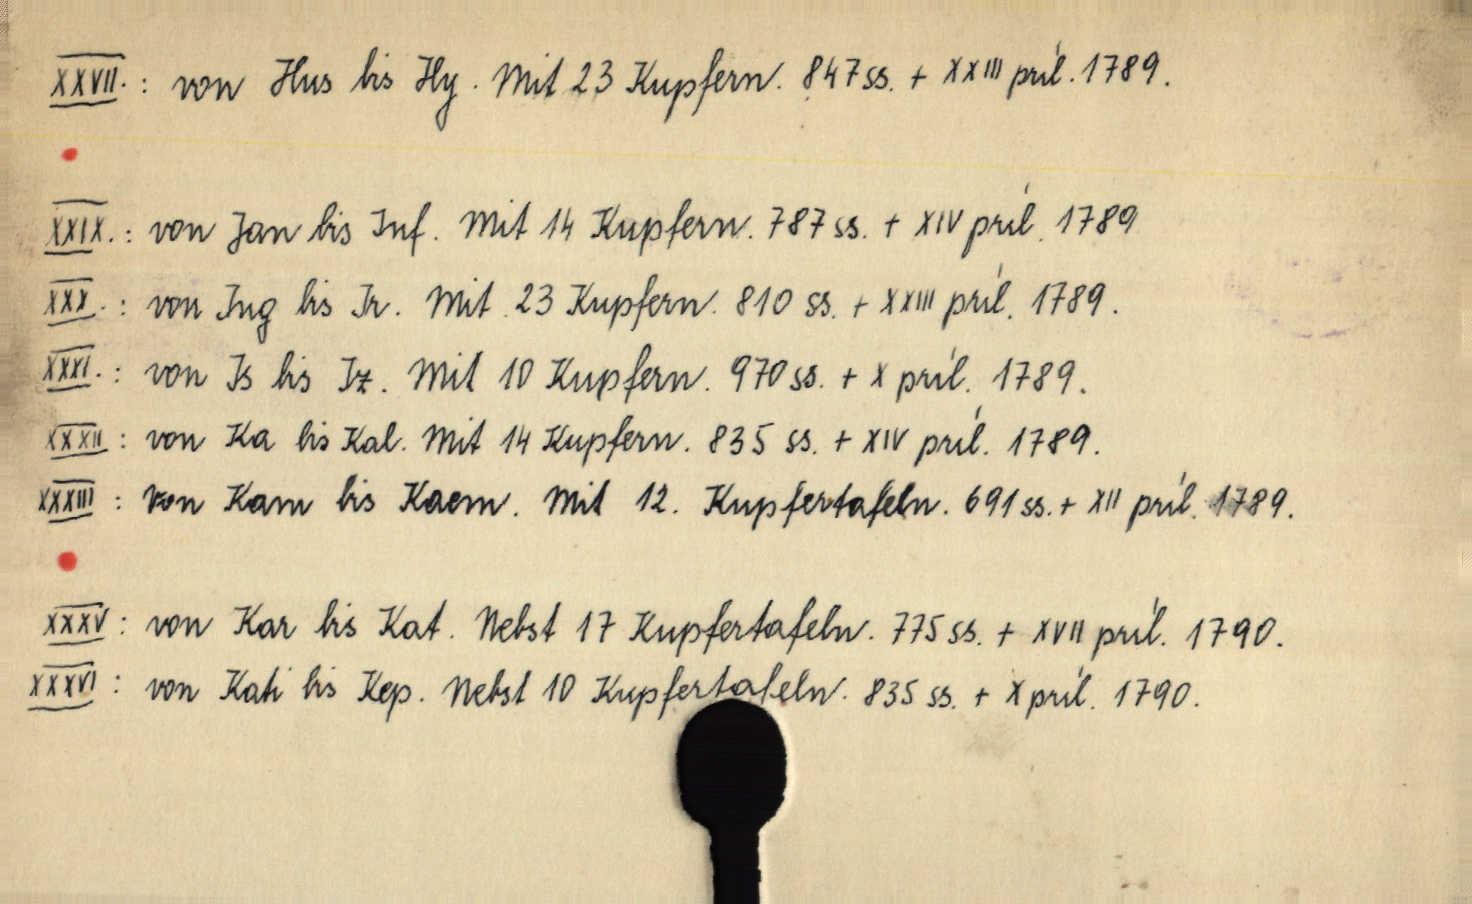 XXVII. : von Hus bis Hy. Mit 23 Kupfern. 847 ss. + XXIII príl. 1789.
XXIX. : von Jan bis Inf. Mit 14 Kupfern. 787 ss. + XIV príl. 1789
XXX. : von Ing bis Ir. Mit 23 Kupfern. 810 ss. + XXIII príl. 1789.
XXXI. : von Is bis Iz. Mit 10 Kupfern. 970 ss. + X príl. 1789.
XXXII : von Ka bis Kal. Mit 14 Kupfern. 835 ss. + XIV príl. 1789.
XXXIII : von Kam bis Kaem. Mit 12. Kupfertafeln. 691 ss. + XII príl. 1789.
XXXV : von Kar bis Kat. Nebst 17 Kupfertafeln. 775 ss. + XVII príl. 1790.
XXXVI : von Kati bis Kep. Nebst 10 Kupfertafeln. 835 ss. + X príl. 1790.